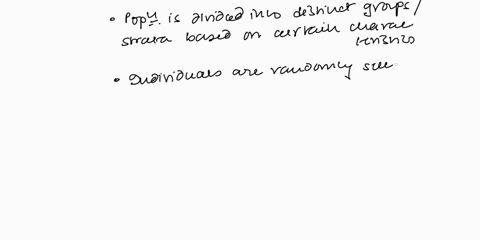 • Popⁿ. is divided into distinct groups/
strata based on certain charac
teristics
• Individuals are randomly sele